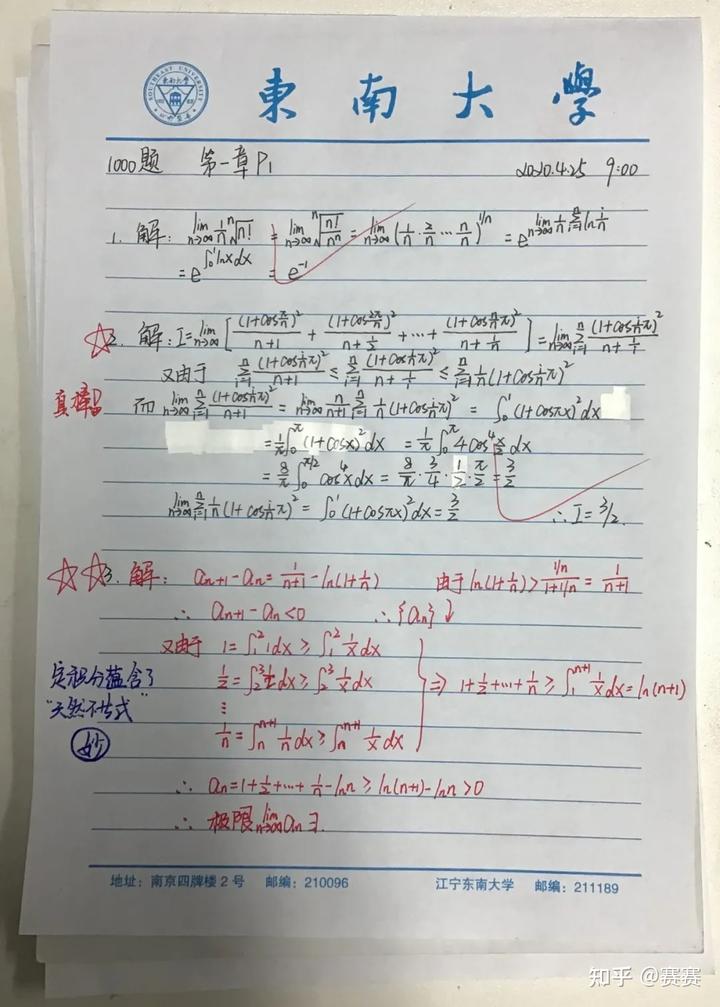 SOUTHEAST UNIVERSITY
東南大學
1000题 第一章P1 2020.4.25 9:00
1. 解: lim_{n→∞} 1/n ⁿ√n! = lim_{n→∞} ⁿ√(n!/nⁿ) = lim_{n→∞} (1/n · 2/n ⋯ n/n)^{1/n} = e^{lim_{n→∞} 1/n Σ_{i=1}^{n} ln i/n}
= e^{∫₀¹ lnx dx} = e^{-1}
☆2. 解: I = lim_{n→∞} [ (1+cos π/n)²/(n+1) + (1+cos 2π/n)²/(n+1/2) + ⋯ + (1+cos n/n π)²/(n+1/n) ] = lim_{n→∞} Σ_{i=1}^{n} (1+cos i/n π)²/(n+1/i)
又由于 Σ_{i=1}^{n} (1+cos i/n π)²/(n+1) ≤ Σ_{i=1}^{n} (1+cos i/n π)²/(n+1/i) ≤ Σ_{i=1}^{n} 1/n (1+cos i/n π)²
真棒!
而 lim_{n→∞} Σ_{i=1}^{n} (1+cos i/n π)²/(n+1) = lim_{n→∞} n/(n+1) Σ_{i=1}^{n} 1/n (1+cos i/n π)² = ∫₀¹ (1+cosπx)² dx
= 1/π ∫₀^π (1+cosx)² dx = 1/π ∫₀^π 4cos⁴ x/2 dx
= 8/π ∫₀^{π/2} cos⁴x dx = 8/π · 3/4 · 1/2 · π/2 = 3/2
lim_{n→∞} Σ_{i=1}^{n} 1/n (1+cos i/n π)² = ∫₀¹ (1+cosπx)² dx = 3/2 ∴ I = 3/2.
☆☆3. 解: a_{n+1} - a_n = 1/(n+1) - ln(1+1/n) 由于 ln(1+1/n) > (1/n)/(1+1/n) = 1/(n+1)
∴ a_{n+1} - a_n < 0 ∴ {a_n} ↓
又由于 1 = ∫₁² 1dx ≥ ∫₁² 1/x dx
1/2 = ∫₂³ 1/2 dx ≥ ∫₂³ 1/x dx ⇒ 1+1/2+⋯+1/n ≥ ∫₁^{n+1} 1/x dx = ln(n+1)
⋮
1/n = ∫_n^{n+1} 1/n dx ≥ ∫_n^{n+1} 1/x dx
定积分蕴含了
"天然不等式"
妙
∴ a_n = 1+1/2+⋯+1/n - ln n ≥ ln(n+1) - ln n > 0
∴ 极限 lim_{n→∞} a_n ∃.
地址: 南京四牌楼2号 邮编: 210096 江宁东南大学 邮编: 211189
知乎 @赛赛